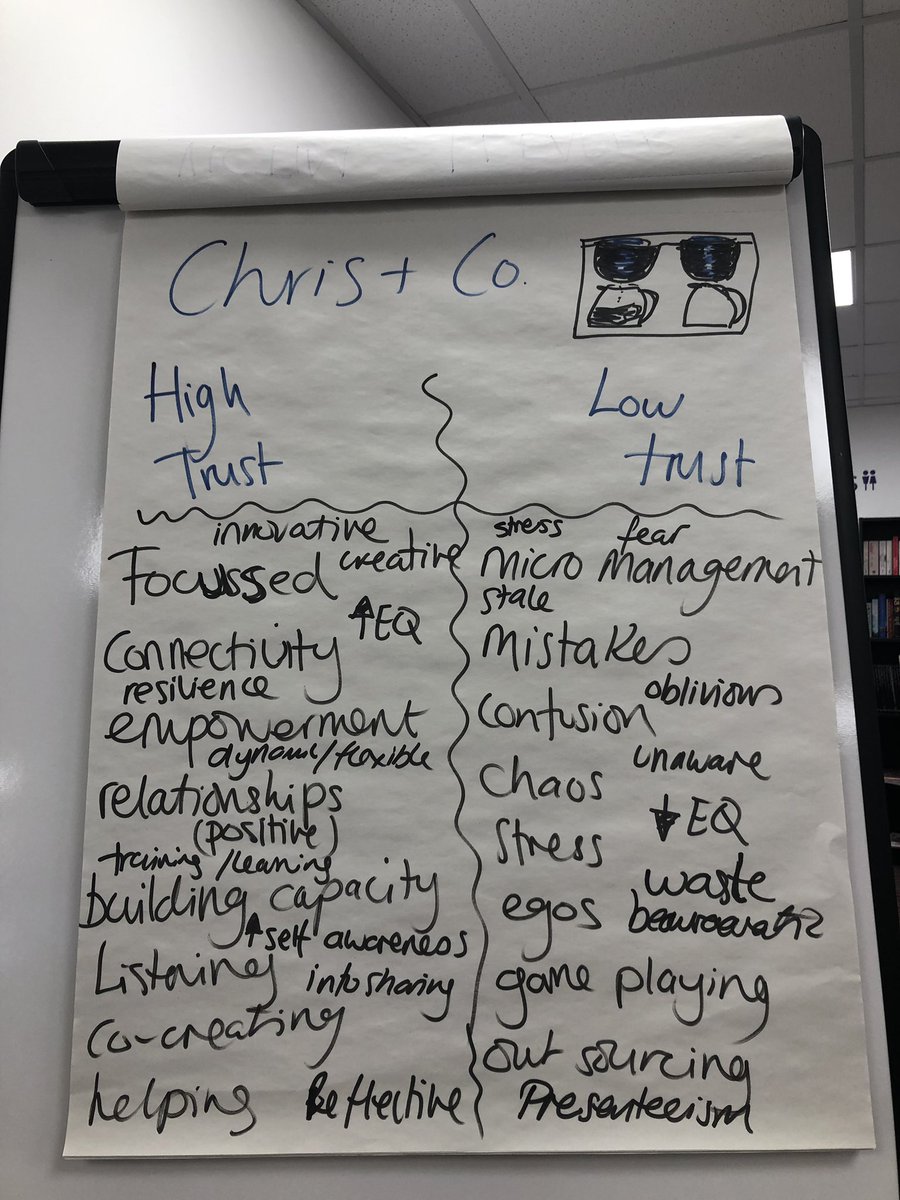 Chris + Co.
High
Trust
innovative
Focussed creative
↑EQ
Connectivity
resilience
empowerment
dynamic/flexible
relationships
(positive)
training/learning
building capacity
↑self awareness
Listening info sharing
Co-creating
helping Reflective
Low
trust
stress fear
Micro Management
stale
Mistakes
Confusion oblivious
Chaos unaware
Stress ↓EQ
egos waste
game playing
out sourcing
Presenteeism